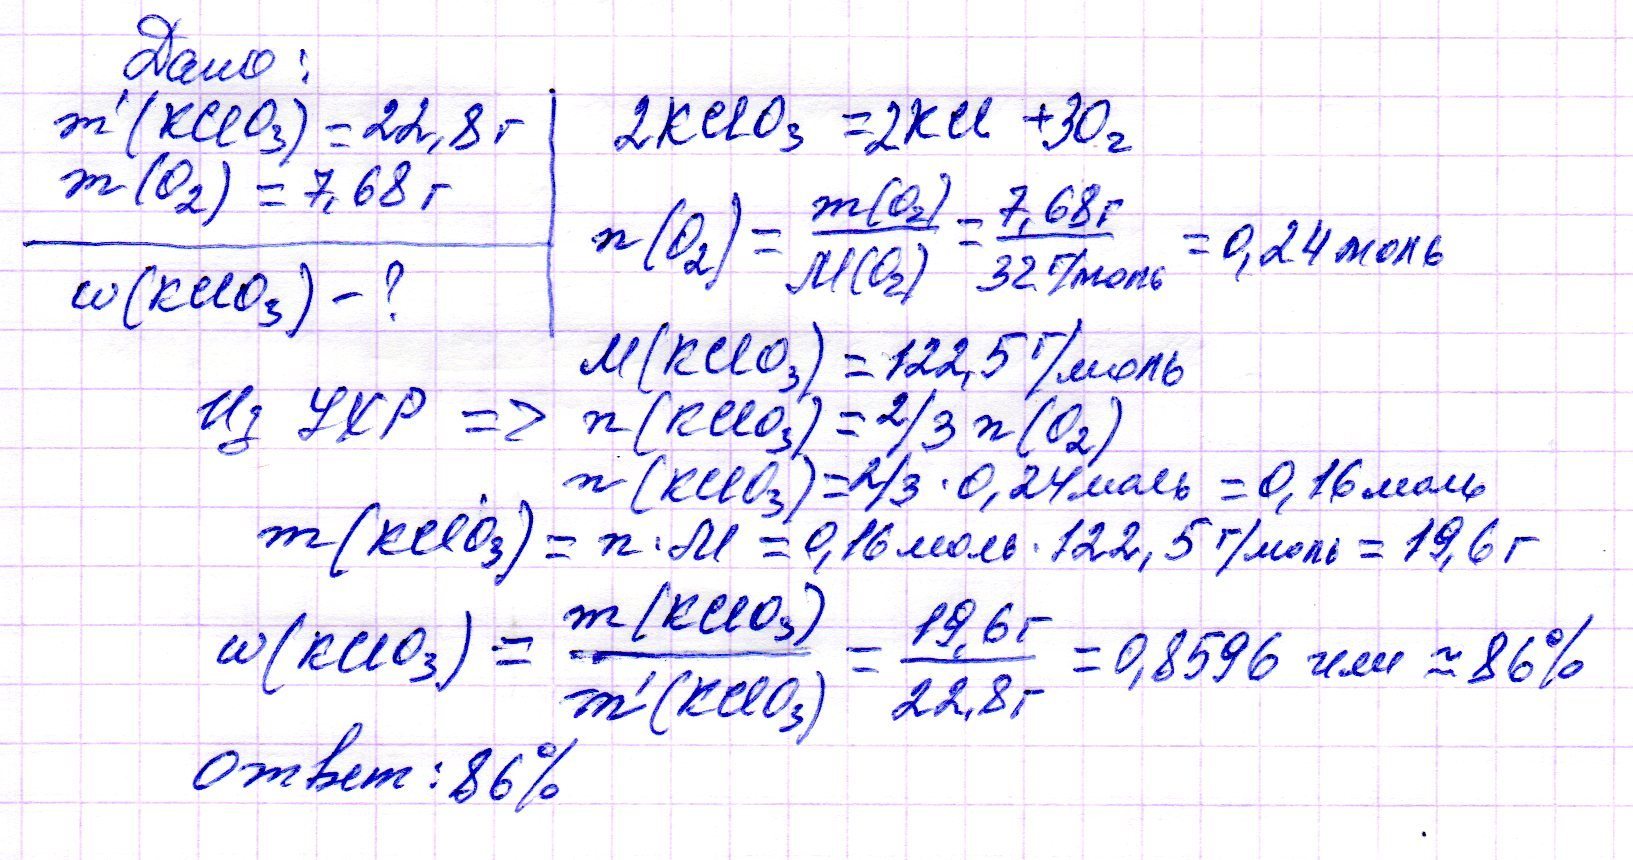 Дано:
m'(KClO₃) = 22,8 г
m(O₂) = 7,68 г
w(KClO₃) - ?
2KClO₃ = 2KCl + 3O₂
n(O₂) = m(O₂)/M(O₂) = 7,68г/32 г/моль = 0,24 моль
M(KClO₃) = 122,5 г/моль
Из УХР => n(KClO₃) = 2/3 n(O₂)
n(KClO₃) = 2/3 · 0,24 моль = 0,16 моль
m(KClO₃) = n · M = 0,16 моль · 122,5 г/моль = 19,6 г
w(KClO₃) = m(KClO₃)/m'(KClO₃) = 19,6 г/22,8 г = 0,8596 или ≃ 86%
Ответ: 86%